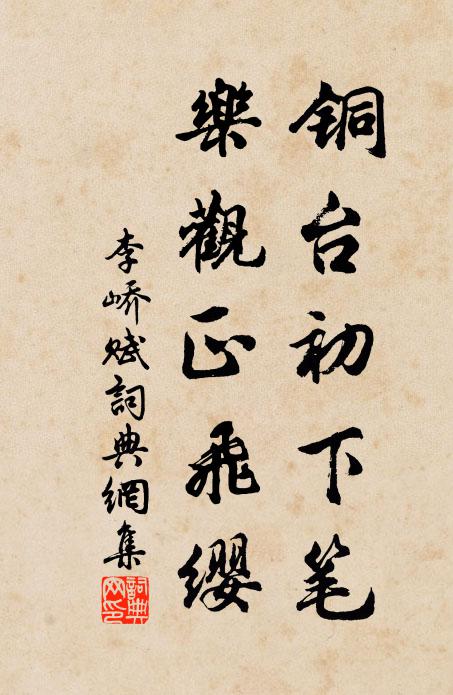 铜台初下笔
樂觀正飛纓
李峤赋詞典網集
詞典网印